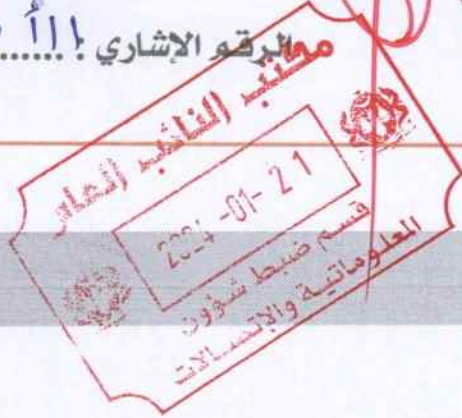 الرقم الإشاري :
مكتب النائب العام
2024 -01- 21
قسم ضبط شؤون
المعلوماتية والإتصالات